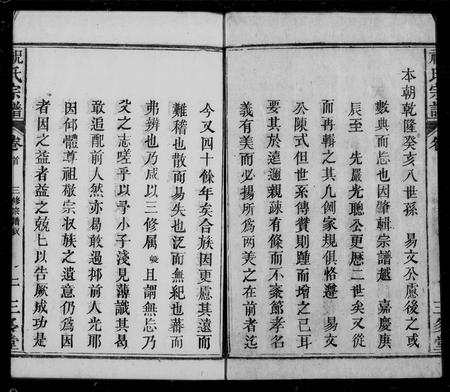 本朝乾隆癸亥八世孫　易文公慮後之或
數典而忘也因肇輯宗譜越　嘉慶庚
辰至　先嚴光聰公更歷二世矣又從
而再輯之其凡例家規俱恪遵　易文
公陳式但世系傳贊則踵而增之已耳
其於遠邇親疎有條而不紊節孝名
義有美而必揚所為兩美之在前者迄
今又四十餘年矣合族因更慮其遠而
難稽也散而易失也泛而無紀也暮而
弗辨也乃咸以三修属　　且謂無忝乃
父之志嗟乎以予小子淺見薄識其曷
敢追配前人然亦曷敢過抑前人光耶
因仰體尊祖敬宗收族之遺意仍為因
者因之益者益之兢兢以告厥成功是
祝氏宗譜
卷首
三修宗譜叙
二
三多堂
祝氏宗譜
卷
三多堂